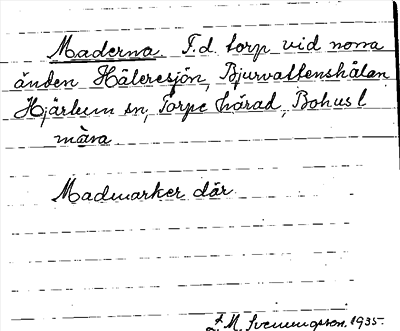 Maderna T.d. torp vid norra
änden Häleresjön, Bjurvattenshålan
Hjärtum sn, Torpe härad, Bohusl
màra
Madmarker där.
1935.